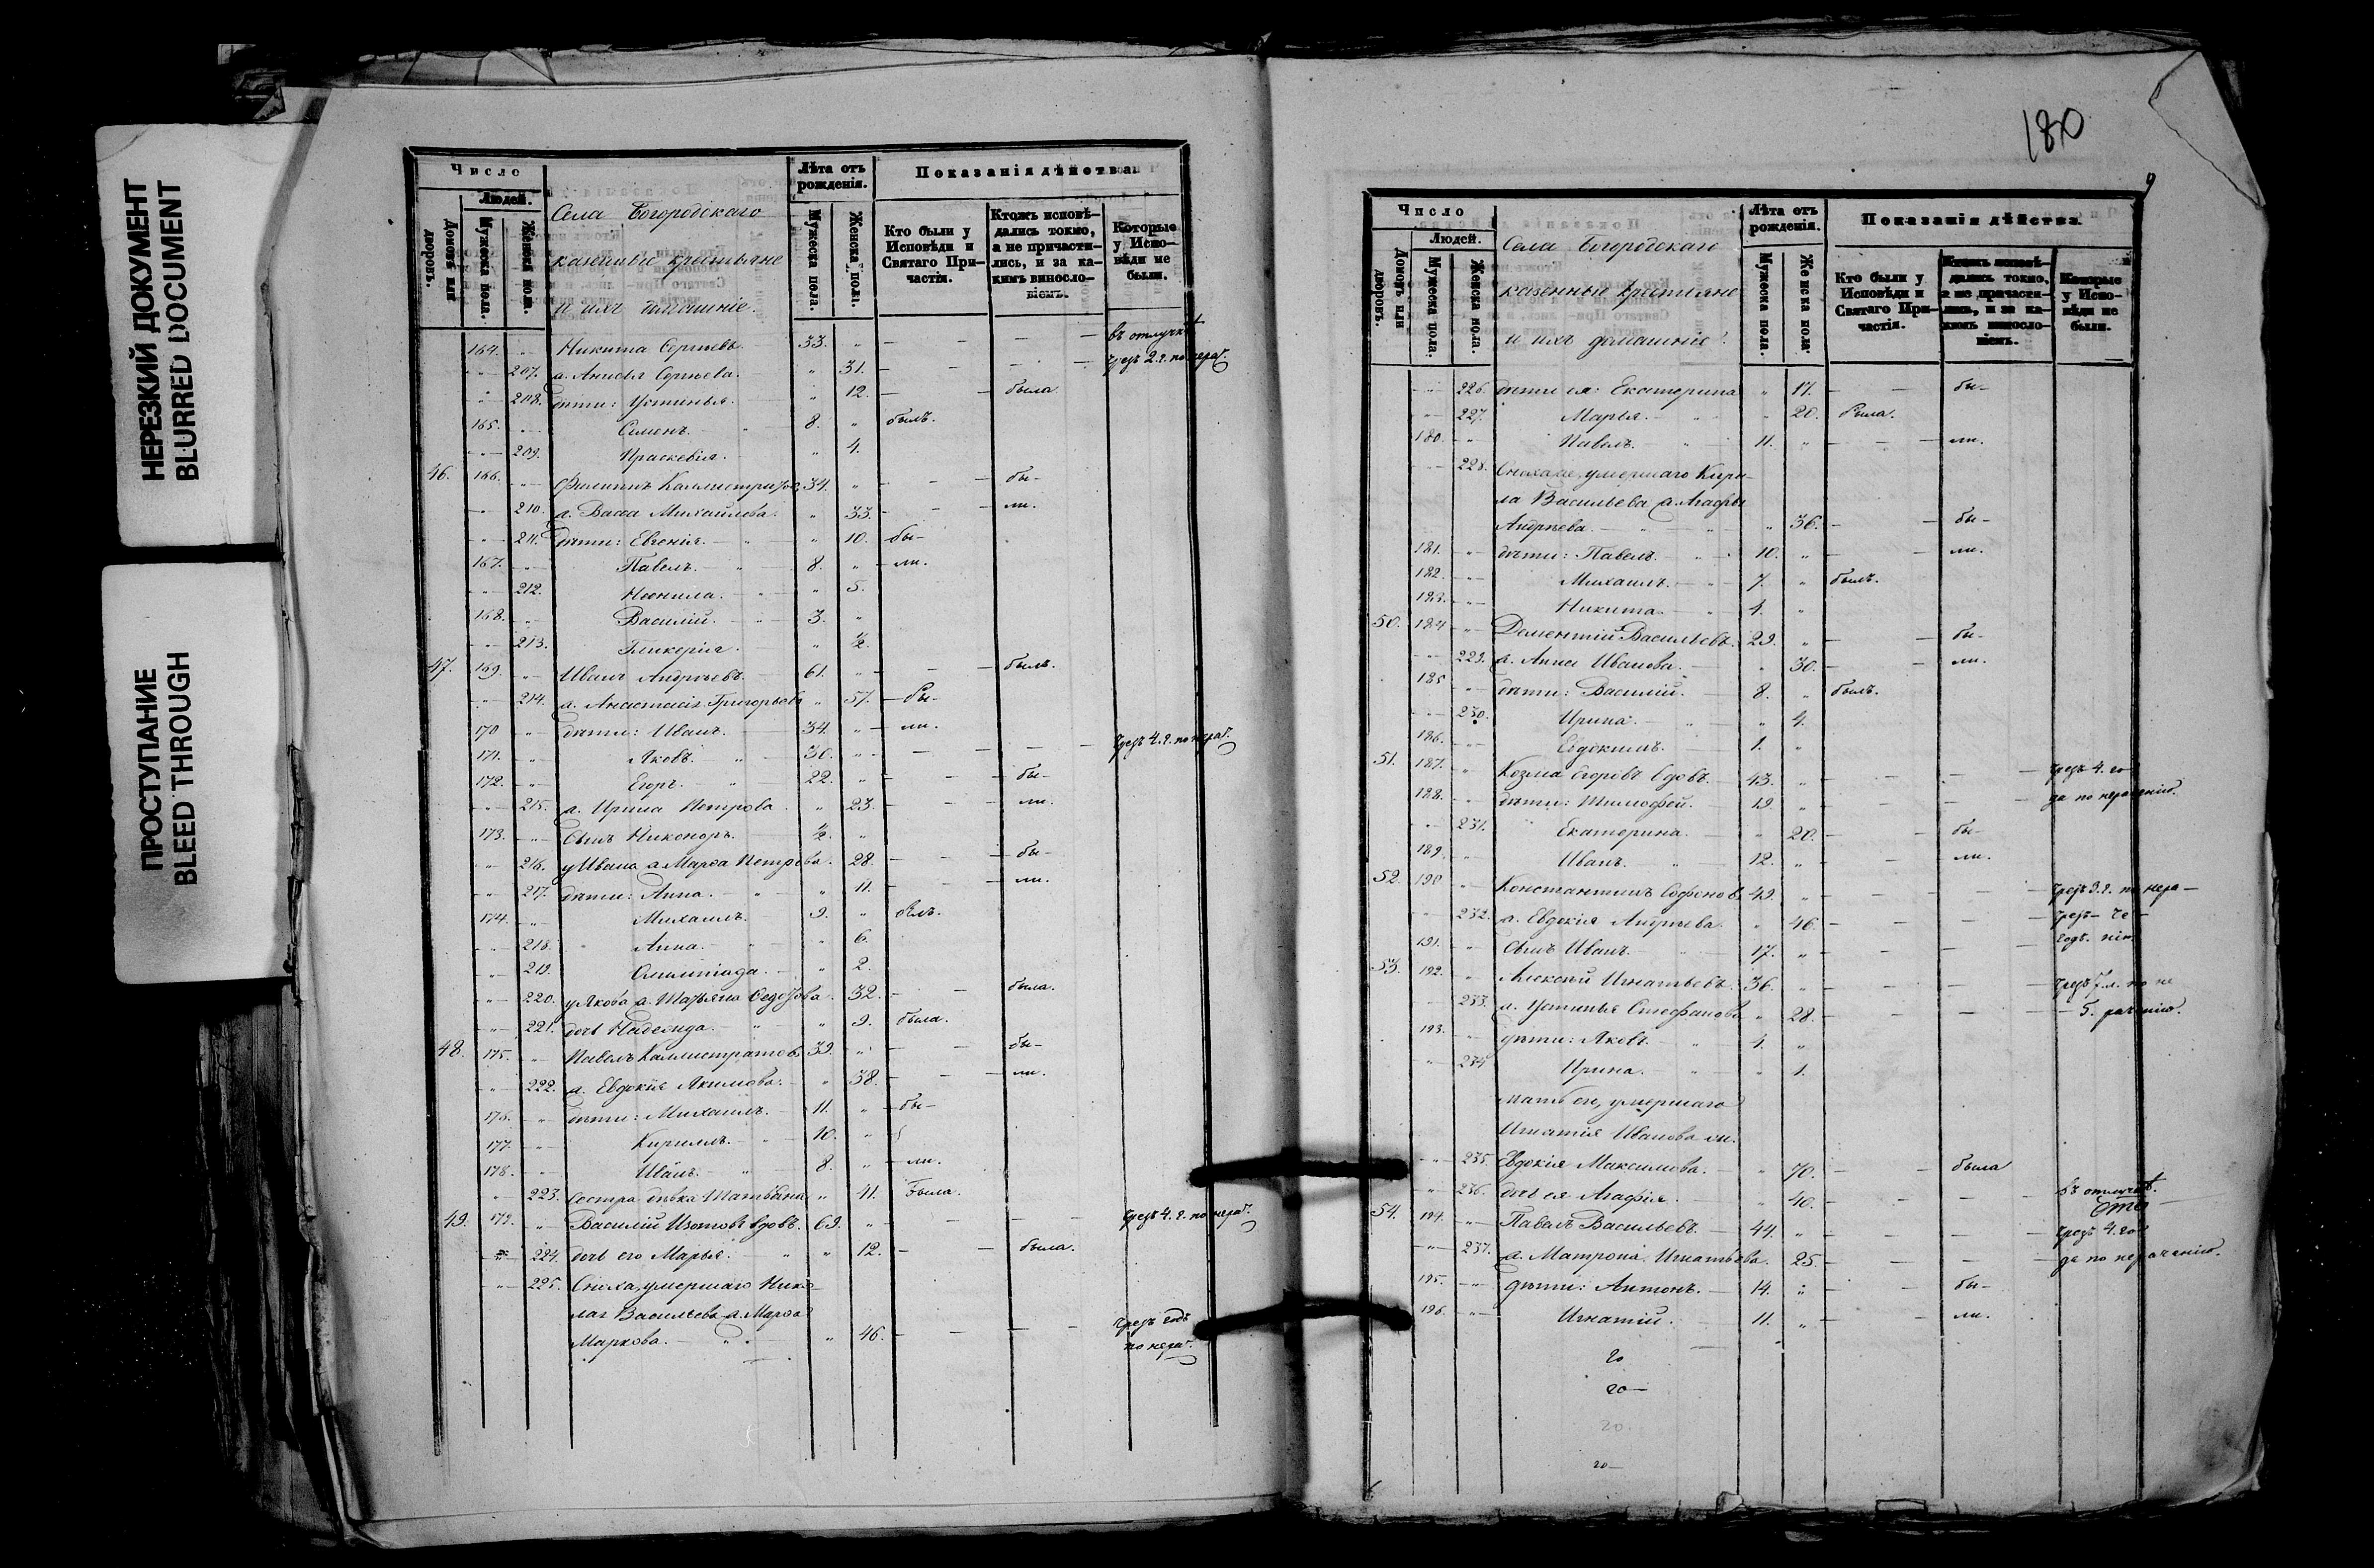 НЕРЕЗКИЙ ДОКУМЕНТ
BLURRED DOCUMENT
ПРОСТУПАНИЕ
BLEED THROUGH
Число
Людей.
Домовъ или дворовъ.
Мужеска пола.
Женска пола.
Села Богородскаго
казенные крестьяне
и ихъ домашніе.
Лѣта отъ рожденія.
Мужеска пола.
Женска пола.
Показанія дѣйства.
Кто были у Исповѣди и Святаго Причастія.
Ктожъ исповѣдались токмо, а не причастились, и за какимъ винословіемъ.
Которые у Исповѣди не были.
164. Никита Сергѣевъ 33. въ отлучкѣ
207. а. Анисья Сергѣева. 31. чрезъ 2. г. по нерач.
208. дѣти: Устинья. 12. была
165. Семенъ. 8. былъ.
209. Праскевія. 4.
46. 166. Филиппъ Каллистратовъ 34. бы-
210. ж. Васса Михайлова. 33. ли.
211. дѣти: Евгенія. 10. бы-
167. Павелъ. 8. ли.
212. Неонила. 5.
168. Василій. 3.
213. Гликерія. ½.
47. 169. Иванъ Андреевъ. 61. былъ.
214. а. Анастасія Григорьева 57. бы-
170 дѣти: Иванъ. 34. ли.
171. Яковъ. 30. чрезъ 4. г. по нерач.
172. Егоръ. 22. бы-
215. а. Ирина Петрова. 23. ли.
173. сынъ Никоноръ. ½.
216. у Ивана а. Марѳа Петрова. 28. бы-
217. дѣти: Анна. 11. ли.
174. Михаилъ. 9. былъ.
218. Анна. 6.
219. Олимпіада. 2.
220. у Якова а. Татьяна Ѳедотова. 32. была.
221. дочь Надежда. 9. была.
48. 175. Павелъ Каллистратовъ 39. бы-
222. а. Евдокія Якимова. 38. ли.
176. дѣти: Михаилъ. 11. бы-
177. Кириллъ. 10.
178. Иванъ. 8. ли.
223. Сестра дѣвка Татьяна 41. была.
49. 179. Василій Изотовъ вдовъ. 69. чрезъ 4. г. по нерач.
224. дочь его Марья. 12. была.
225. Сноха, умершаго Нико-
лая Васильева а. Марѳа
Маркова. 46. чрезъ годъ
по нерач.
180
9
Число
Людей.
Домовъ или дворовъ.
Мужеска пола.
Женска пола.
Села Богородскаго
казенные крестьяне
и ихъ домашніе.
Лѣта отъ рожденія.
Мужеска пола.
Женска пола.
Показанія дѣйства.
Кто были у Исповѣди и Святаго Причастія.
Ктожъ исповѣдались токмо, а не причастились, и за какимъ винословіемъ.
Которые у Исповѣди не были.
226. дѣти ея: Екатерина 17. бы-
227. Марья. 20. была.
180. Павелъ. 11. ли.
228. Сноха умершаго Кири-
ла Васильева а. Агафья
Андреева. 36. бы-
181. дѣти: Павелъ. 10. ли.
182. Михаилъ. 7. былъ.
183. Никита. 4.
50. 184 Дементій Васильевъ. 29. бы-
229. а. Анна Иванова. 30. ли.
185 дѣти: Василій. 8. былъ.
230. Ирина. 4.
186. Евдокимъ. 1.
51. 187. Козма Егоровъ вдовъ. 43. чрезъ 4. го-
188. дѣти: Тимофей. 19. да по нераченію.
231. Екатерина. 20. бы-
189. Иванъ. 12. ли.
52. 190 Константинъ Софоновъ 49. чрезъ 3. г. по нера-
232. а. Евдокія Андреева. 46. чрезъ че-
191. сынъ Иванъ. 17. годъ. нію
53. 192. Алексѣй Игнатьевъ. 36. чрезъ л. по не
233. а. Устинья Стефанова 28. 5. раченію.
193. дѣти: Яковъ. 4.
234 Ирина. 1.
мать его, умершаго
Игнатія Иванова ж.
235. Евдокія Максимова. 70. была
236. дочь ея Агафія. 40. въ отлучкѣ.
54. 194. Павелъ Васильевъ. 44. чрезъ 4. го-
237. а. Матрона Игнатьева. 25. да по нераченію.
195. дѣти: Антонъ. 14. бы-
196. Игнатій. 11. ли.
20
20-
20.
20-